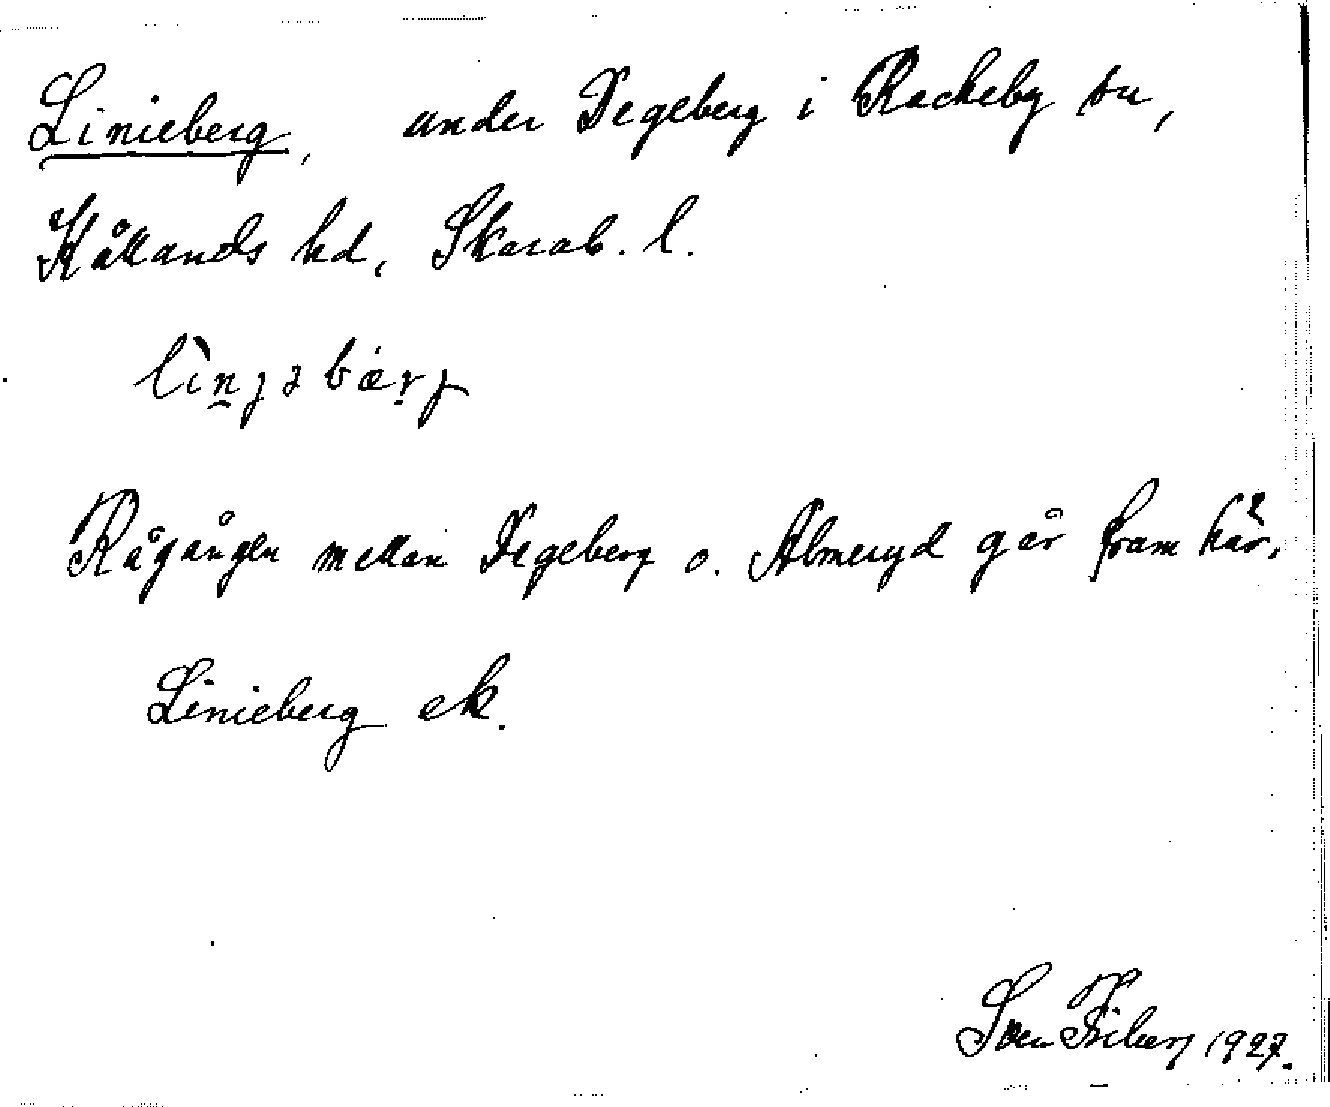 Linieberg, under Degeberg i Rackeby sn,
Kållands hd, Skarab. l.
lìnjəbærj
Rågången mellan Degeberg o. Almeryd går fram här.
Linieberg ek.
Sven Friberg 1927.